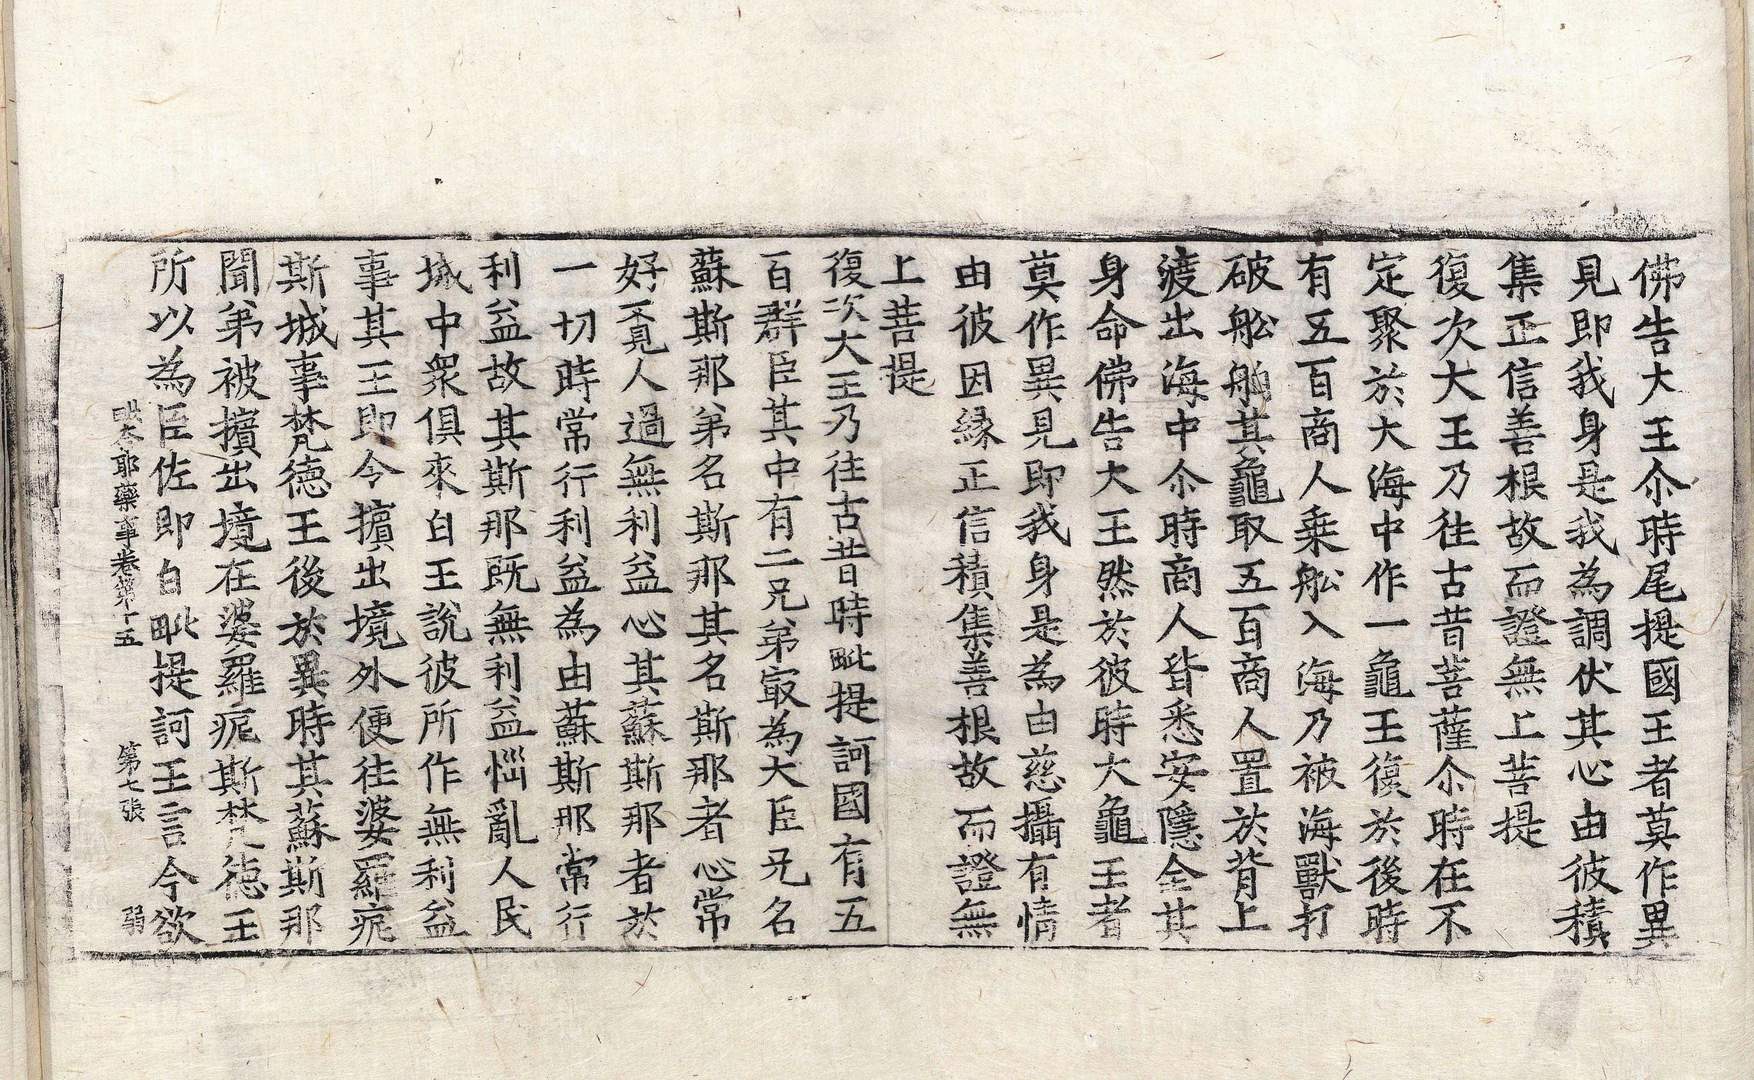 佛告大王尒時尾提國王者莫作異
見即我身是我為調伏其心由彼積
集正信善根故而證無上菩提
復次大王乃往古昔菩薩尒時在不
定聚於大海中作一龜王復於後時
有五百商人乘舩入海乃被海獸打
破舩舶其龜取五百商人置於背上
渡出海中尒時商人皆悉安隱全其
身命佛告大王然於彼時大龜王者
莫作異見即我身是為由慈攝有情
由彼因縁正信積集善根故而證無
上菩提
復次大王乃往古昔時毗提訶國有五
百群臣其中有二兄弟㝡為大臣兄名
蘇斯那弟名斯那其名斯那者心常
好覓人過無利益心其蘇斯那者於
一切時常行利益為由蘇斯那常行
利益故其斯那既無利益惱亂人民
城中衆俱來白王說彼所作無利益
事其王即令擯出境外便往婆羅痆
斯城事梵德王後於異時其蘇斯那
聞弟被擯出境在婆羅痆斯梵德王
所以為臣佐即白毗提訶王言今欲
毗奈耶藥事卷第十五 第七張 弱